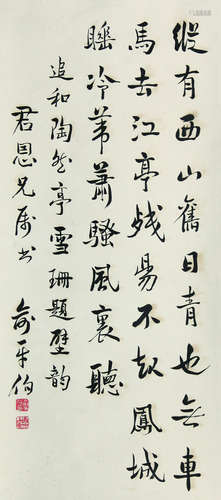 縱有西山舊日青也無車
馬去江亭殘昜不起鳳城
睡冷葦蕭騷風裏聽
追和陶然亭雪珊題壁韻
君恩兄屬書
俞平伯